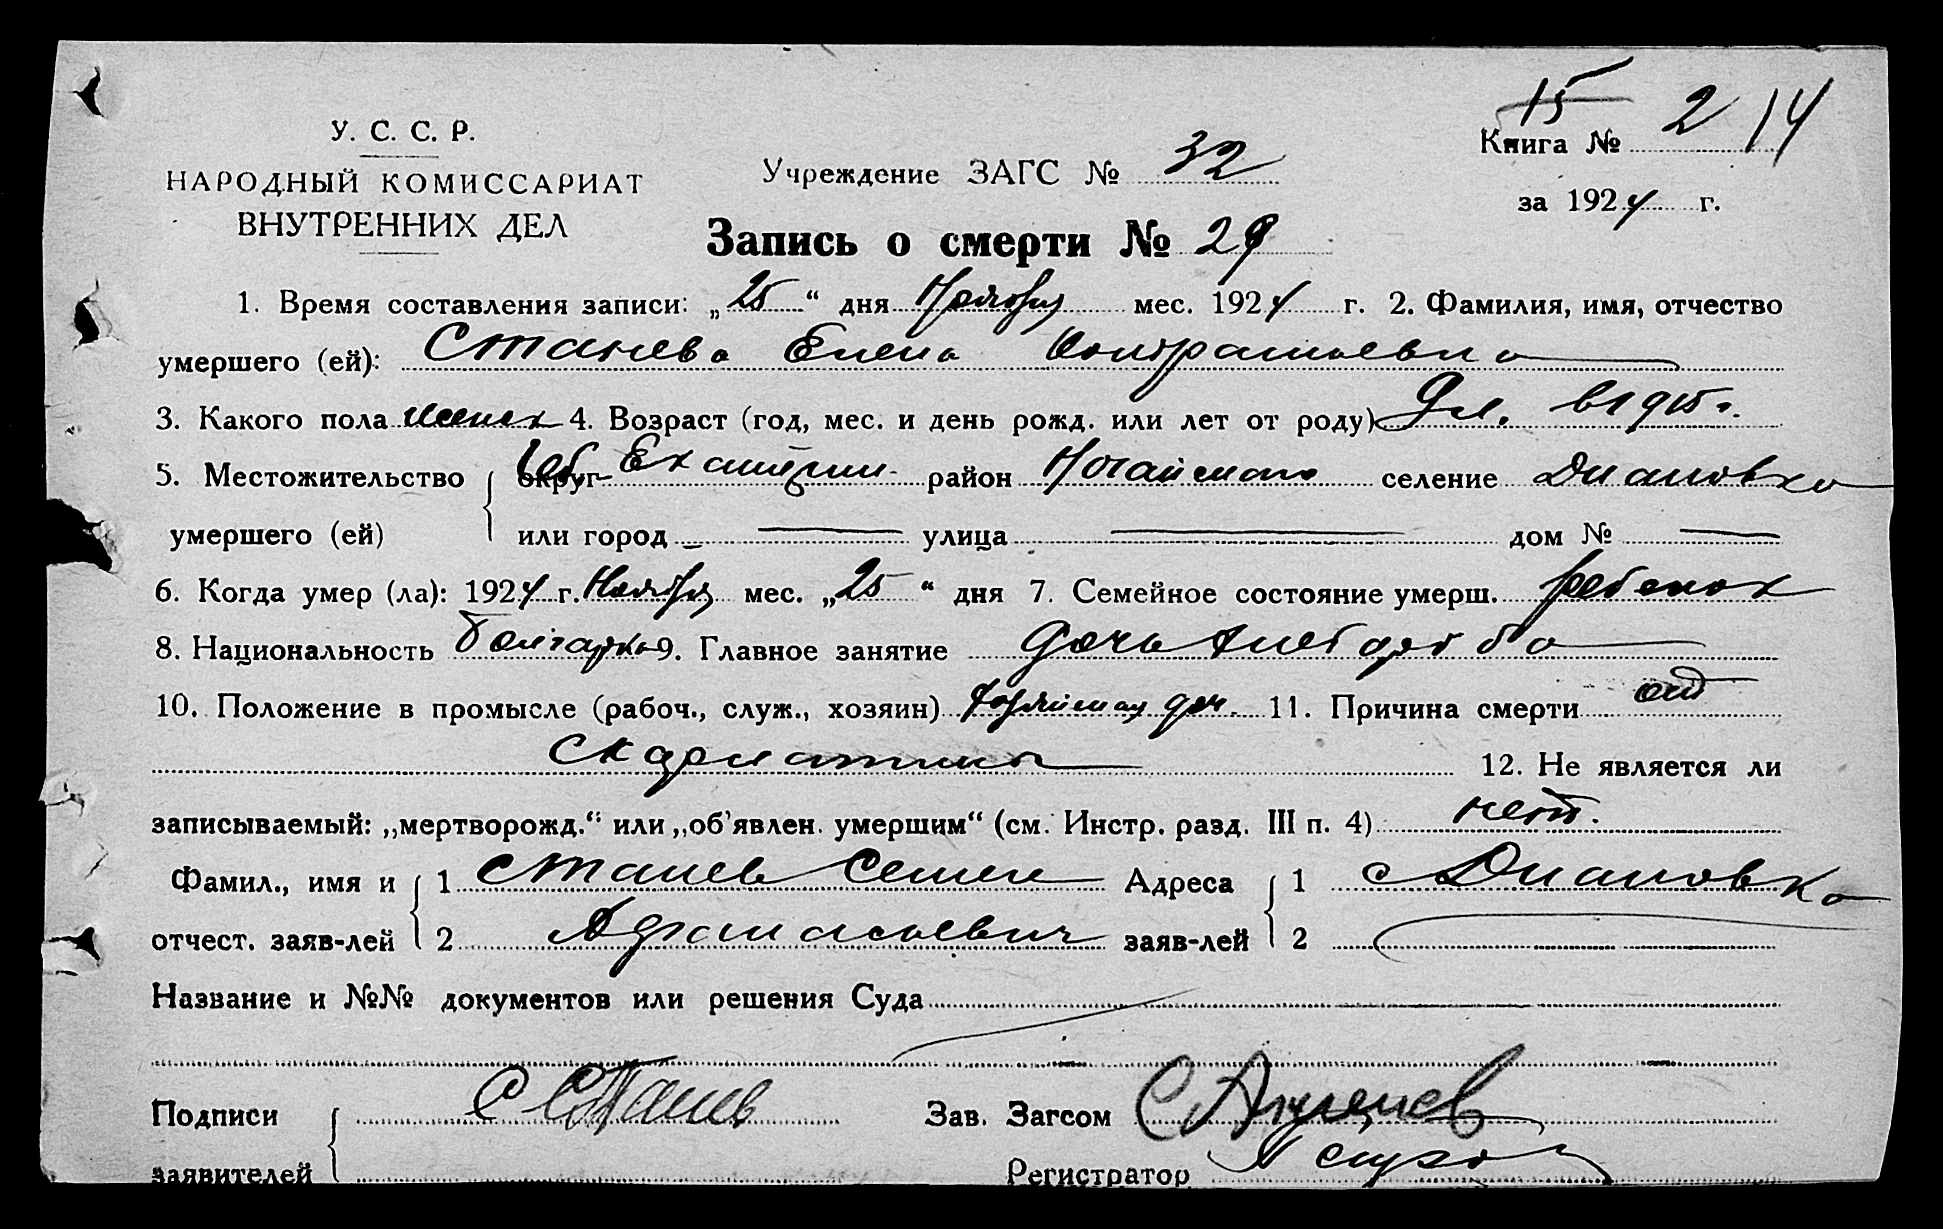 15 2 14
У. С. С. Р.
НАРОДНЫЙ КОМИССАРИАТ
ВНУТРЕННИХ ДЕЛ
Учреждение ЗАГС № 32
Книга №
за 1924 г.
Запись о смерти № 29
1. Время составления записи: „25“ дня Ноября мес. 1924 г. 2. Фамилия, имя, отчество
умершего (ей): Станева Елена Кондратьевна
3. Какого пола женск 4. Возраст (год, мес. и день рожд. или лет от роду) 9 л. в 1915 г.
5. Местожительство округ Екатерин. район Ногайского селение Диановка
умершего (ей) или город — улица — дом № —
6. Когда умер (ла): 1924 г. Ноября мес. „25“ дня 7. Семейное состояние умерш. ребенок
8. Национальность Болгарка 9. Главное занятие дочь хлебороба
10. Положение в промысле (рабоч., служ., хозяин) 11. Причина смерти от
скарлатины 12. Не является ли
записываемый: „мертворожд.“ или „об'явлен. умершим“ (см. Инстр. разд. III п. 4) нет.
Фамил., имя и 1 Станев Семен Адреса 1 с Диановка
отчест. заяв-лей 2 Афанасьевич заяв-лей 2
Название и №№ документов или решения Суда
Подписи С Станев Зав. Загсом
заявителей Регистратор